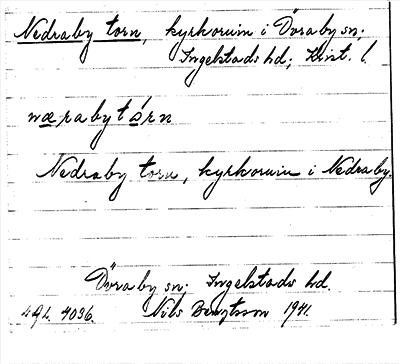 Nedraby torn, kyrkoruin i Övraby sn;
Ingelstads hd; Krist. l.
nærabytórn
Nedraby torn, kyrkoruin i Nedraby.
Övraby sn; Ingelstads hd.
4036. Nils Bengtsson 1941.